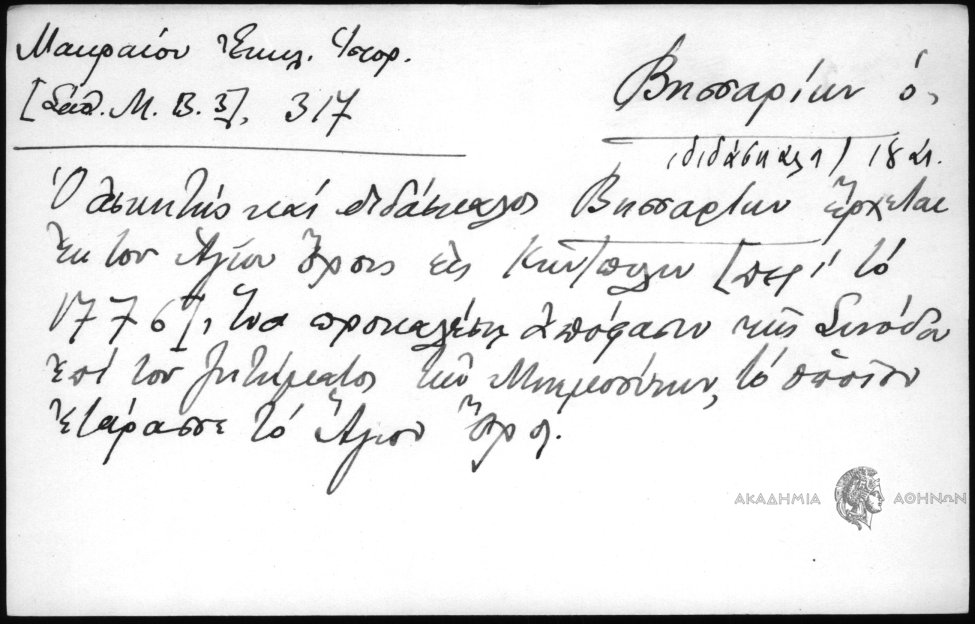 Μακραίου Ἐκκλ. Ἱστορ.
[Σάθ. Μ. Β. 3], 317
Βησσαρίων ὁ,
(διδάσκαλος) 18 αι.
Ὁ ἀσκητής καί διδάσκαλος Βησσαρίων ἔρχεται
ἐκ του Ἁγίου Ὄρους εἰς Κων/πολιν [περί τό
1776], ἵνα προκαλέσῃ ἀπόφασιν τῆς Συνόδου
ἐπί του ζητήματος τῶν Μνημοσύνων, τό ὁποῖον
ἐτάρασσε τό Ἅγιον Ὄρος.
ΑΚΑΔΗΜΙΑ ΑΘΗΝΩΝ